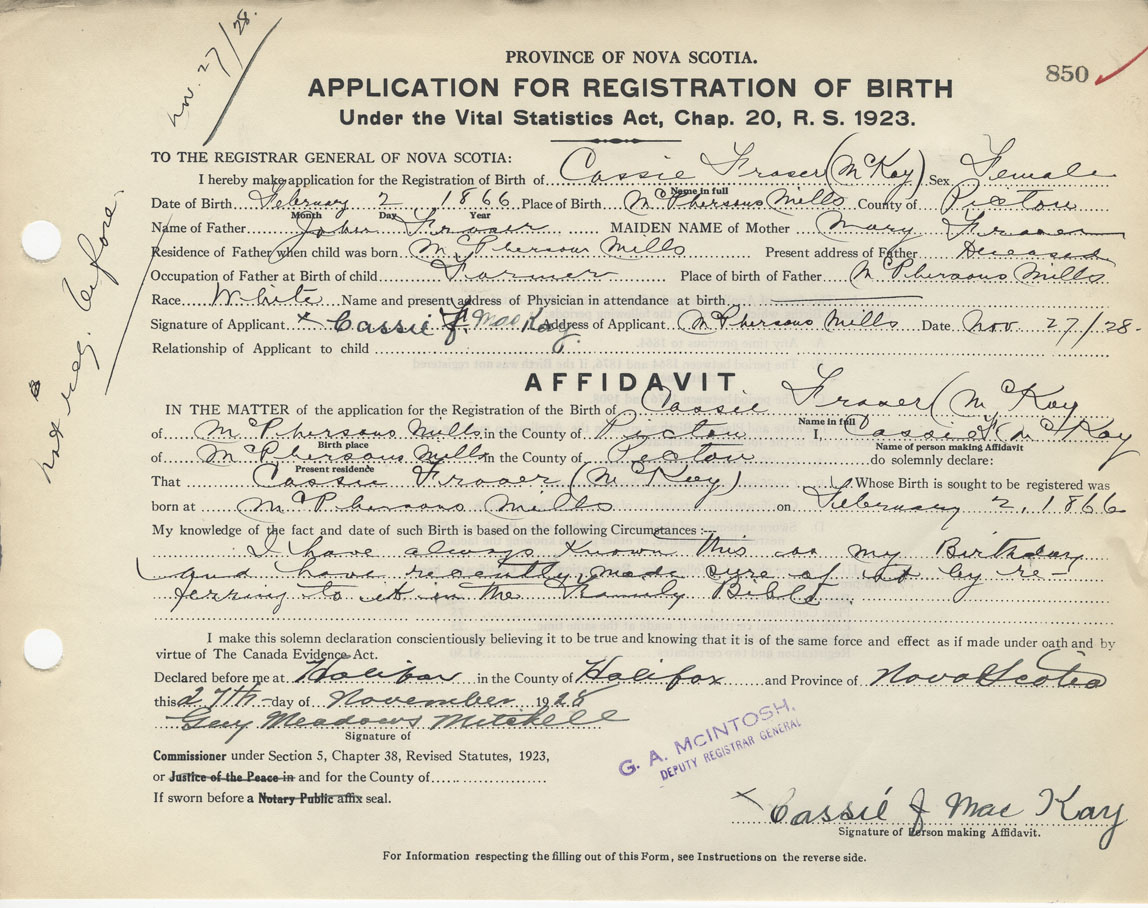 Nov. 27/28.
not reg. before.
PROVINCE OF NOVA SCOTIA.
850
APPLICATION FOR REGISTRATION OF BIRTH
Under the Vital Statistics Act, Chap. 20, R. S. 1923.
TO THE REGISTRAR GENERAL OF NOVA SCOTIA:
I hereby make application for the Registration of Birth of Cassie Fraser (McKay) Sex Female
Name in full
Date of Birth February 2 1866 Place of Birth McPhersons Mills County of Pictou
Month Day Year
Name of Father John Fraser MAIDEN NAME of Mother Mary Fraser
Residence of Father when child was born McPhersons Mills Present address of Father Deceased
Occupation of Father at Birth of child Farmer Place of birth of Father McPhersons Mills
Race White Name and present address of Physician in attendance at birth
Signature of Applicant x Cassie F MacKay Address of Applicant McPhersons Mills Date Nov. 27/28.
Relationship of Applicant to child
AFFIDAVIT.
IN THE MATTER of the application for the Registration of the Birth of Cassie Fraser (McKay
Name in full
of McPhersons Mills in the County of Pictou I, Cassie F McKay
Birth place Name of person making Affidavit
of McPhersons Mills in the County of Pictou do solemnly declare:
Present residence
That Cassie Fraser (McKay) Whose Birth is sought to be registered was
born at McPhersons Mills on February 2, 1866
My knowledge of the fact and date of such Birth is based on the following Circumstances:—
I have always known this as my Birthday
and have recently made sure of it by re-
ferring to it in the Family Bible.
I make this solemn declaration conscientiously believing it to be true and knowing that it is of the same force and effect as if made under oath and by
virtue of The Canada Evidence Act.
Declared before me at Halifax in the County of Halifax and Province of Nova Scotia
this 27th day of November 1928
Guy Meadows Mitchell
Signature of
Commissioner under Section 5, Chapter 38, Revised Statutes, 1923,
or Justice of the Peace in and for the County of
If sworn before a Notary Public affix seal.
G. A. MCINTOSH,
DEPUTY REGISTRAR GENERAL
x Cassie F MacKay
Signature of Person making Affidavit.
For Information respecting the filling out of this Form, see Instructions on the reverse side.